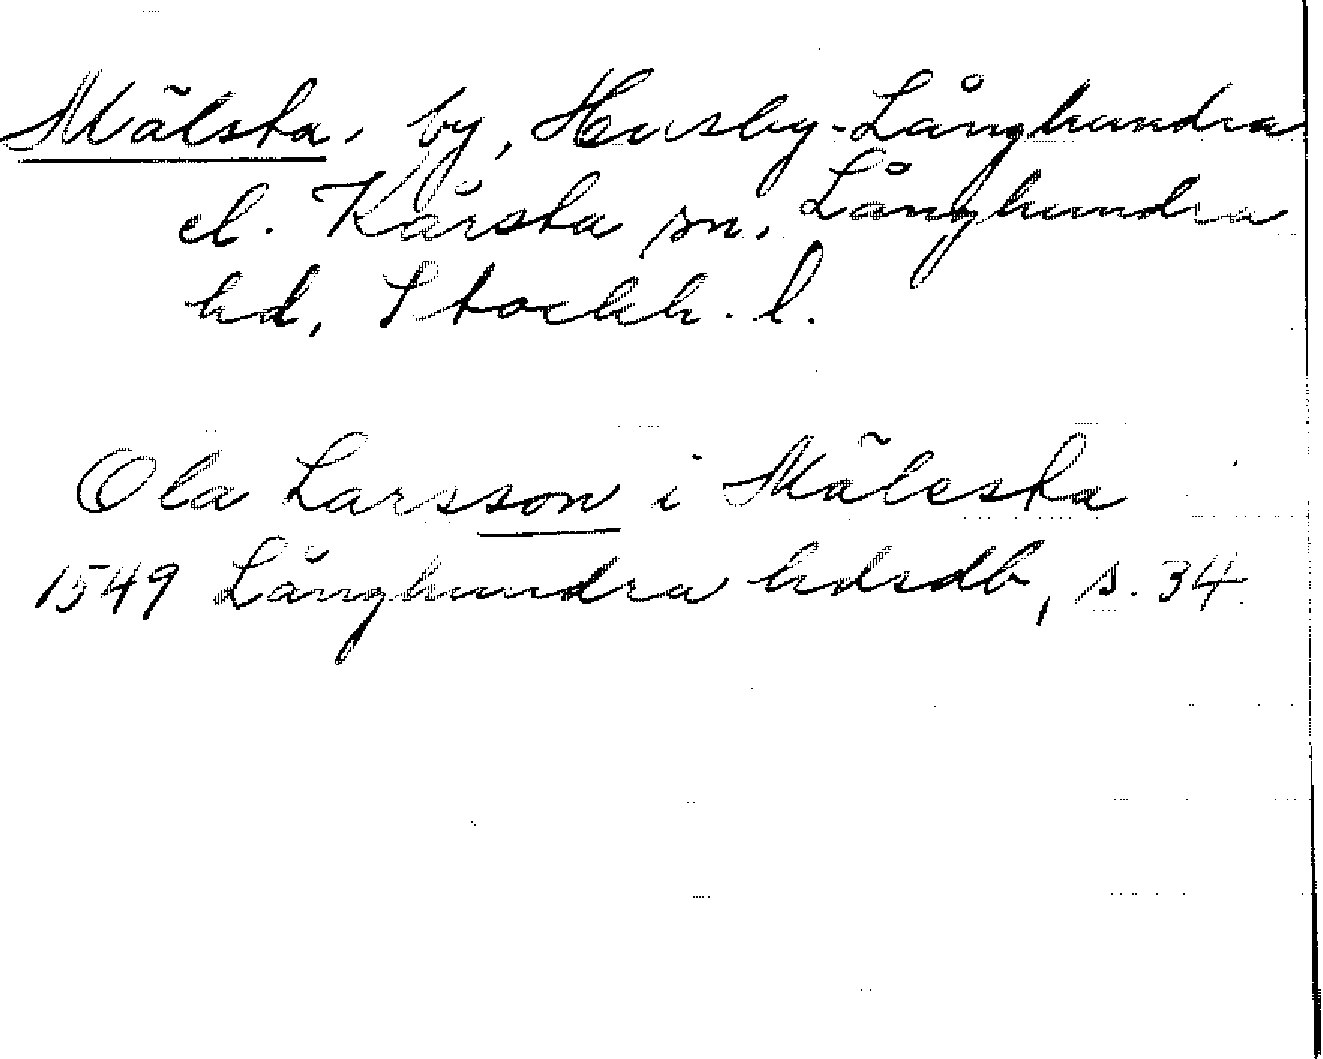 Mälsta, by, Husby-Långhundra
el. Kårsta sn. Långhundra
hd, Stockh. l.
Ola Larsson i Mälesta
1549 Långhundra hdrdb, s. 34.